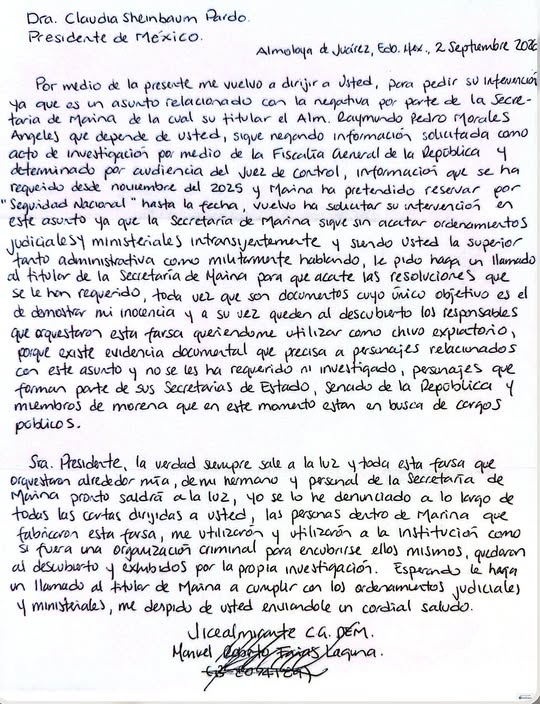 Dra. Claudia Sheinbaum Pardo.
Presidente de México.
Almoloya de Juárez, Edo. Mex., 2 Septiembre 2026
Por medio de la presente me vuelvo a dirijir a Usted, para pedir su intervención
ya que es un asunto relacionado con la negativa por parte de la Secre-
taria de Marina de la cual su titular el Alm. Raymundo Pedro Morales
Angeles que depende de usted, sigue negando información solicitada como
acto de investigación por medio de la Fiscalía General de la República y
determinado por audiencia del Juez de Control, información que se ha
requerido desde noviembre del 2025 y Marina ha pretendido reservar por
"Seguridad Nacional" hasta la fecha, vuelvo ha solicitar su intervención en
este asunto ya que la Secretaría de Marina sigue sin acatar ordenamientos
judiciales y ministeriales intransyentemente y siendo Usted la superior
tanto administrativa como militarmente hablando, le pido haga un llamado
al titular de la Secretaría de Marina para que acate las resoluciones que
se le han requerido, toda vez que son documentos cuyo único objetivo es el
de demostrar mi inocencia y a su vez queden al descubierto los responsables
que orquestaron esta farsa queriendome utilizar como chivo expiatorio,
porque existe evidencia documental que precisa a personajes relacionados
con este asunto y no se les ha requerido ni investigado, personajes que
forman parte de sus Secretarias de Estado, Senado de la República y
miembros de morena que en este momento estan en busca de cargos
públicos.
Sra. Presidente, la verdad siempre sale a la luz y toda esta farsa que
orquestaron alrededor mía, de mi hermano y personal de la Secretaría de
Marina pronto saldrá a la luz, yo se lo he denunciado a lo largo de
todas las cartas dirijidas a usted, las personas dentro de Marina que
fabricaron esta farsa, me utilizarón y utilizarón a la Institución como
si fuera una organización criminal para encubrirse ellos mismos, quedaran
al descubierto y exhibidos por la propia investigación. Esperando le haga
un llamado al titular de Marina a cumplir con los ordenamientos judiciales
y ministeriales, me despido de usted enviandole un cordial saludo.
Vicealmirante C.G. DEM.
Manuel Roberto Farias Laguna.